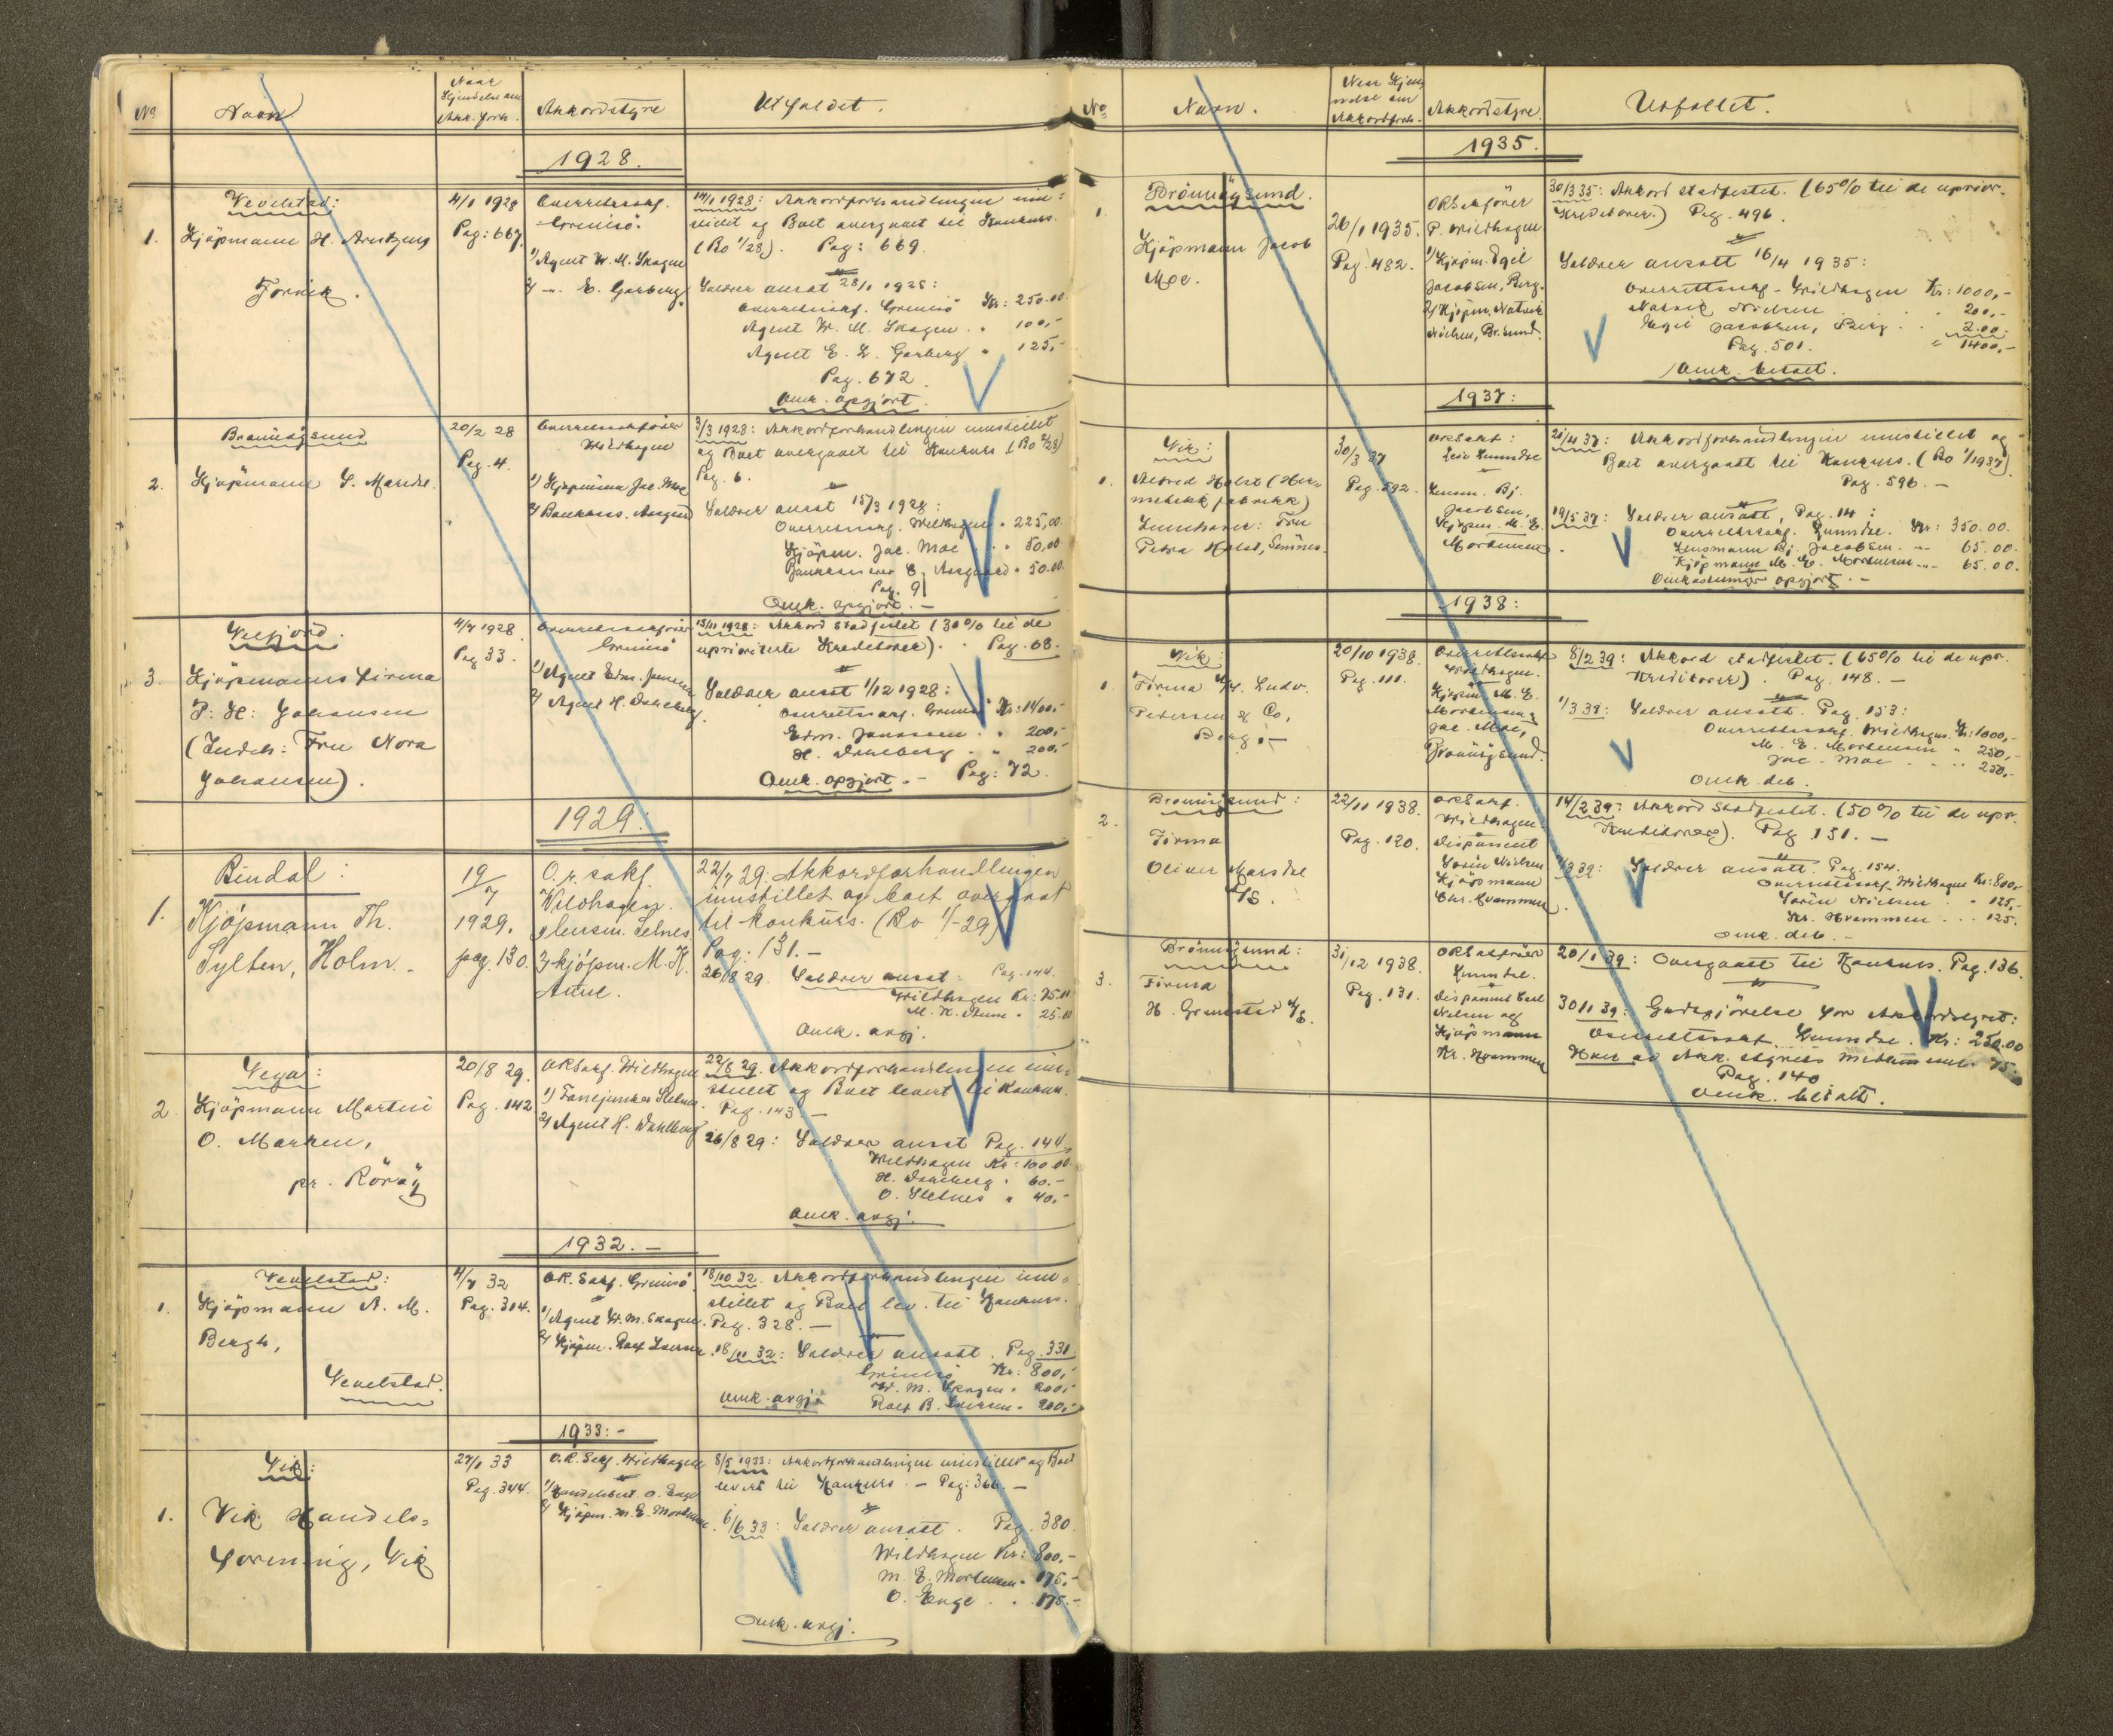 No
Navn
Naar Kjendelse om Akk. forh.
Akkordstyre
Utfaldet.
1928.
1.
Vevelstad:
Kjöpmann H. Arntzen,
Forvik.
4/1 1928
Pag: 667.
Overretssakf.
Grenisö.
1) Agent W. M. Skagen
2) -"- E. Garberg.
14/1 1928: Akkordforhandlingen ind-
stillet og Boet overgaaet til Konkurs.
(Bo 1/28). Pag: 669.
Salærer ansat 28/1 1928:
Overretssakf. Grenisö Kr: 250.00
Agent W. M. Skagen . " 100,-
Agent E. L. Garberg " 125,-
Pag. 672.
Omk. opgjort.
2.
Brönnöysund
Kjöpmann S. Marsdal.
20/2 28
Pag. 4.
Overretssakförer
Wildhagen
1) Kjöpmann Jac. Moe
2) Bankkass. Aasgaard
3/3 1928: Akkordforhandlingen innstillet
og Boet overgaaet til Konkurs. (Bo 2/28)
Pag. 6.
Salærer ansat 15/3 1928:
Overretssakf. Wildhagen " 225,00
Kjöpm. Jac. Moe . . " 50,00
Bankkasserer E. Aasgaard " 50.00.
Pag. 9
Omk. opgjort. -
3.
Velfjord.
Kjöpmanns firma
P. H. Johansen
(Indeh: Fru Nora
Johansen).
4/7 1928
Pag 33.
Overretssakförer
Grenisö
1) Agent Edm. Janssen
2) Agent H. Dahlberg.
15/11 1928: Akkord stadfestet (30% til de
uprioriterte Kreditorer). . Pag. 68.
Salærer ansat 1/12 1928:
Overrettssakf. Grenisö Kr: 1400,-
Edm. Janssen . " 200,-
H. Dahlberg . " 200,-
Omk. opgjort. - Pag: 72.
1929.
1.
Bindal:
Kjöpmann Th.
Sylten, Holm. -
19/7
1929.
pag. 130.
O. r. sakf.
Wildhagen.
1) lensm. Selnes
2) kjöpm. M. K.
Aune.
22/7 29: Akkordforhandlingen
innstillet og boet overgaat
til konkurs. (Bo 1/-29)
Pag: 131. -
26/8 29. Salærer ansat: Pag. 144.
Wildhagen Kr: 75.00
M. K. Aune " 25.00
Omk. avgj.
2.
Vega:
Kjöpmann Martin
O. Marken,
pr. Röröy
20/8 29.
Pag. 142
ORSakf. Wildhagen
1) Fanejunker Stelnes.
2) Agent H. Dahlberg
22/8 29. Akkordforhandlingen inn-
stillet og Boet levert til Konkurs.
Pag. 143. -
26/8 29: Salærer ansat Pag. 144.
Wildhagen Kr: 100.00
H. Dahlberg " 60.-
O. Stelnes " 40,-
Omk. avgj.
1932. -
1.
Vevelstad:
Kjöpmann A. M.
Bergh,
Vevelstad.
4/7 32
Pag. 314.
O.R. Sakf. Grenisö.
1) Agent W. M. Skagen.
2) Kjöpm. Rolf Iversen.
18/10 32. Akkordforhandlingen inn-
stillet og Boet lev. til Konkurs.
Pag. 328. -
18/11 32: Salærer ansatt. Pag. 331
Grenisö Kr: 800,-
W. M. Skagen " 200,-
Rolf B. Iversen " 200,-
Omk. avgj.
1933: -
1.
Vik:
Vik Handels-
forening, Vik
27/1 33
Pag. 344.
O.R. Sakf. Wildhagen
1) Handelsbest. O. Enge
2) Kjöpm. M. E. Mortensen.
8/5 1933: Akkordforhandlingen innstillet og Boet
levert til Konkurs. - Pag: 366. -
6/6 33: Salærer ansatt. Pag. 380.
Wildhagen Kr: 800.-
M. E. Mortensen " 175.-
O. Enge . . 175.-
Omk. avgj.
No
Navn.
Naar Kjennelse om Akkordforh.
Akkordstyre.
Utfallet.
1935.
1.
Brönnöysund.
Kjöpmann Jacob
Moe.
26/1 1935.
Pag. 482.
ORSakförer
P. Wildhagen
1) Kjöpm. Egil
Jacobsen, Berg.
2) Kjöpm. Natvik
Nielsen, Br.sund.
30/3 35: Akkord stadfestet. (65% til de uprior.
Kreditorer.) Pag. 496.
Salærer ansatt 16/4 1935:
Overrettssakf. Wildhagen Kr: 1000,-
Natvik Nielsen . . 200,-
Egil Jacobsen, Berg . . 200.-
Pag. 501. " 1400,-
Omk. betalt.
1937:
1.
Vik:
Alfred Holst (Her-
metikkfabrikk)
Innehaver: Fru
Petra Holst, Sömnes.
30/3 37
Pag. 592.
ORSakf:
Leiv Lunndal
Lensm. Bj.
Jacobsen,
Kjöpm. M. E.
Mortensen.
21/4 37: Akkordforhandlingen innstillet og
Boet overgaatt til Konkurs. (Bo 1/1937)
Pag. 596. -
19/5 37: Salærer ansatt, Pag. 14:
Overrettssakf. Lunndal. Kr: 350.00.
Lensmann Bj. Jacobsen. -"- 65.00.
Kjöpmann M. E. Mortensen -"- 65.00.
Omkostninger opgjort. -
1938:
1.
Vik:
Firma A/S. Ludv.
Pedersen & Co,
Berg. -
20/10 1938.
Pag. 111.
Overrettssakf.
Wildhagen.
Kjöpm. M. E.
Mortensen,
Jac. Moe,
Brönnöysund.
8/2 39: Akkord stadfestet. (65% til de upr.
Kreditorer). Pag. 148. -
1/3 39: Salærer ansatt. Pag. 153:
Overrettssakf. Wildhagen Kr: 1000,-
M. E. Mortensen " 250,-
Jac. Moe . . " 250,-
Omk. deb.
2.
Brönnöysund:
Firma
Oliver Marsdal
A/S.
22/11 1938.
Pag. 120.
ORSakf.
Wildhagen.
Disponent
Sörin Nielsen
Kjöpmann
Chr. Kvammen.
14/2 39: Akkord stadfestet. (50% til de upr.
Kreditorer). Pag 151. -
1/3 39: Salærer ansatt. Pag. 154.
Overrettssakf. Wildhagen Kr: 800,-
Sörin Nielsen . " 125,-
Kr. Kvammen . . . 125.
Omk. deb. -
3.
Brönnöysund:
Firma
H. Grimstad A/S.
31/12 1938.
Pag. 131.
ORSakförer
Lunndal.
Disponent Carl
Nielsen og
Kjöpmann
Kr. Kvammen
20/1 39: Overgaatt til Konkurs. Pag. 136.
30/1 39: Godtgjörelse for Akkordstyret:
Overrettssakf. Lunndal. Kr: 250.00
Hver av Akk. styrets medlemmer 75.-
Pag. 140
Omk. betalt.